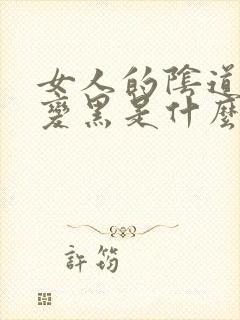 女人的陰道
變黑是什麼
許筠